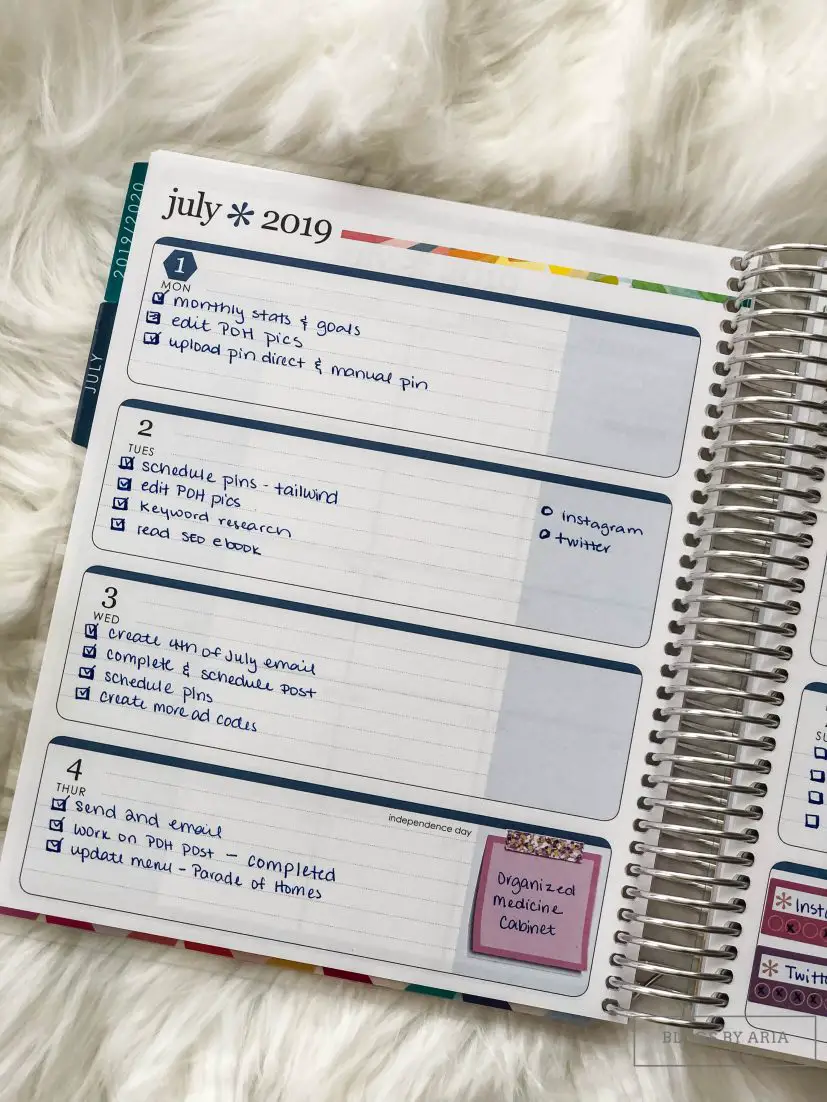 july * 2019
2019/2020
JULY
1
MON
monthly stats & goals
edit POH pics
upload pin direct & manual pin
2
TUES
schedule pins - tailwind
edit POH pics
keyword research
read SEO ebook
instagram
twitter
3
WED
create 4th of July email
complete & schedule post
schedule pins
create more ad codes
4
THUR
independence day
send and email
work on POH post - completed
update menu - Parade of Homes
Organized
Medicine
Cabinet
SU
Insta
Twitt
BY ARIA